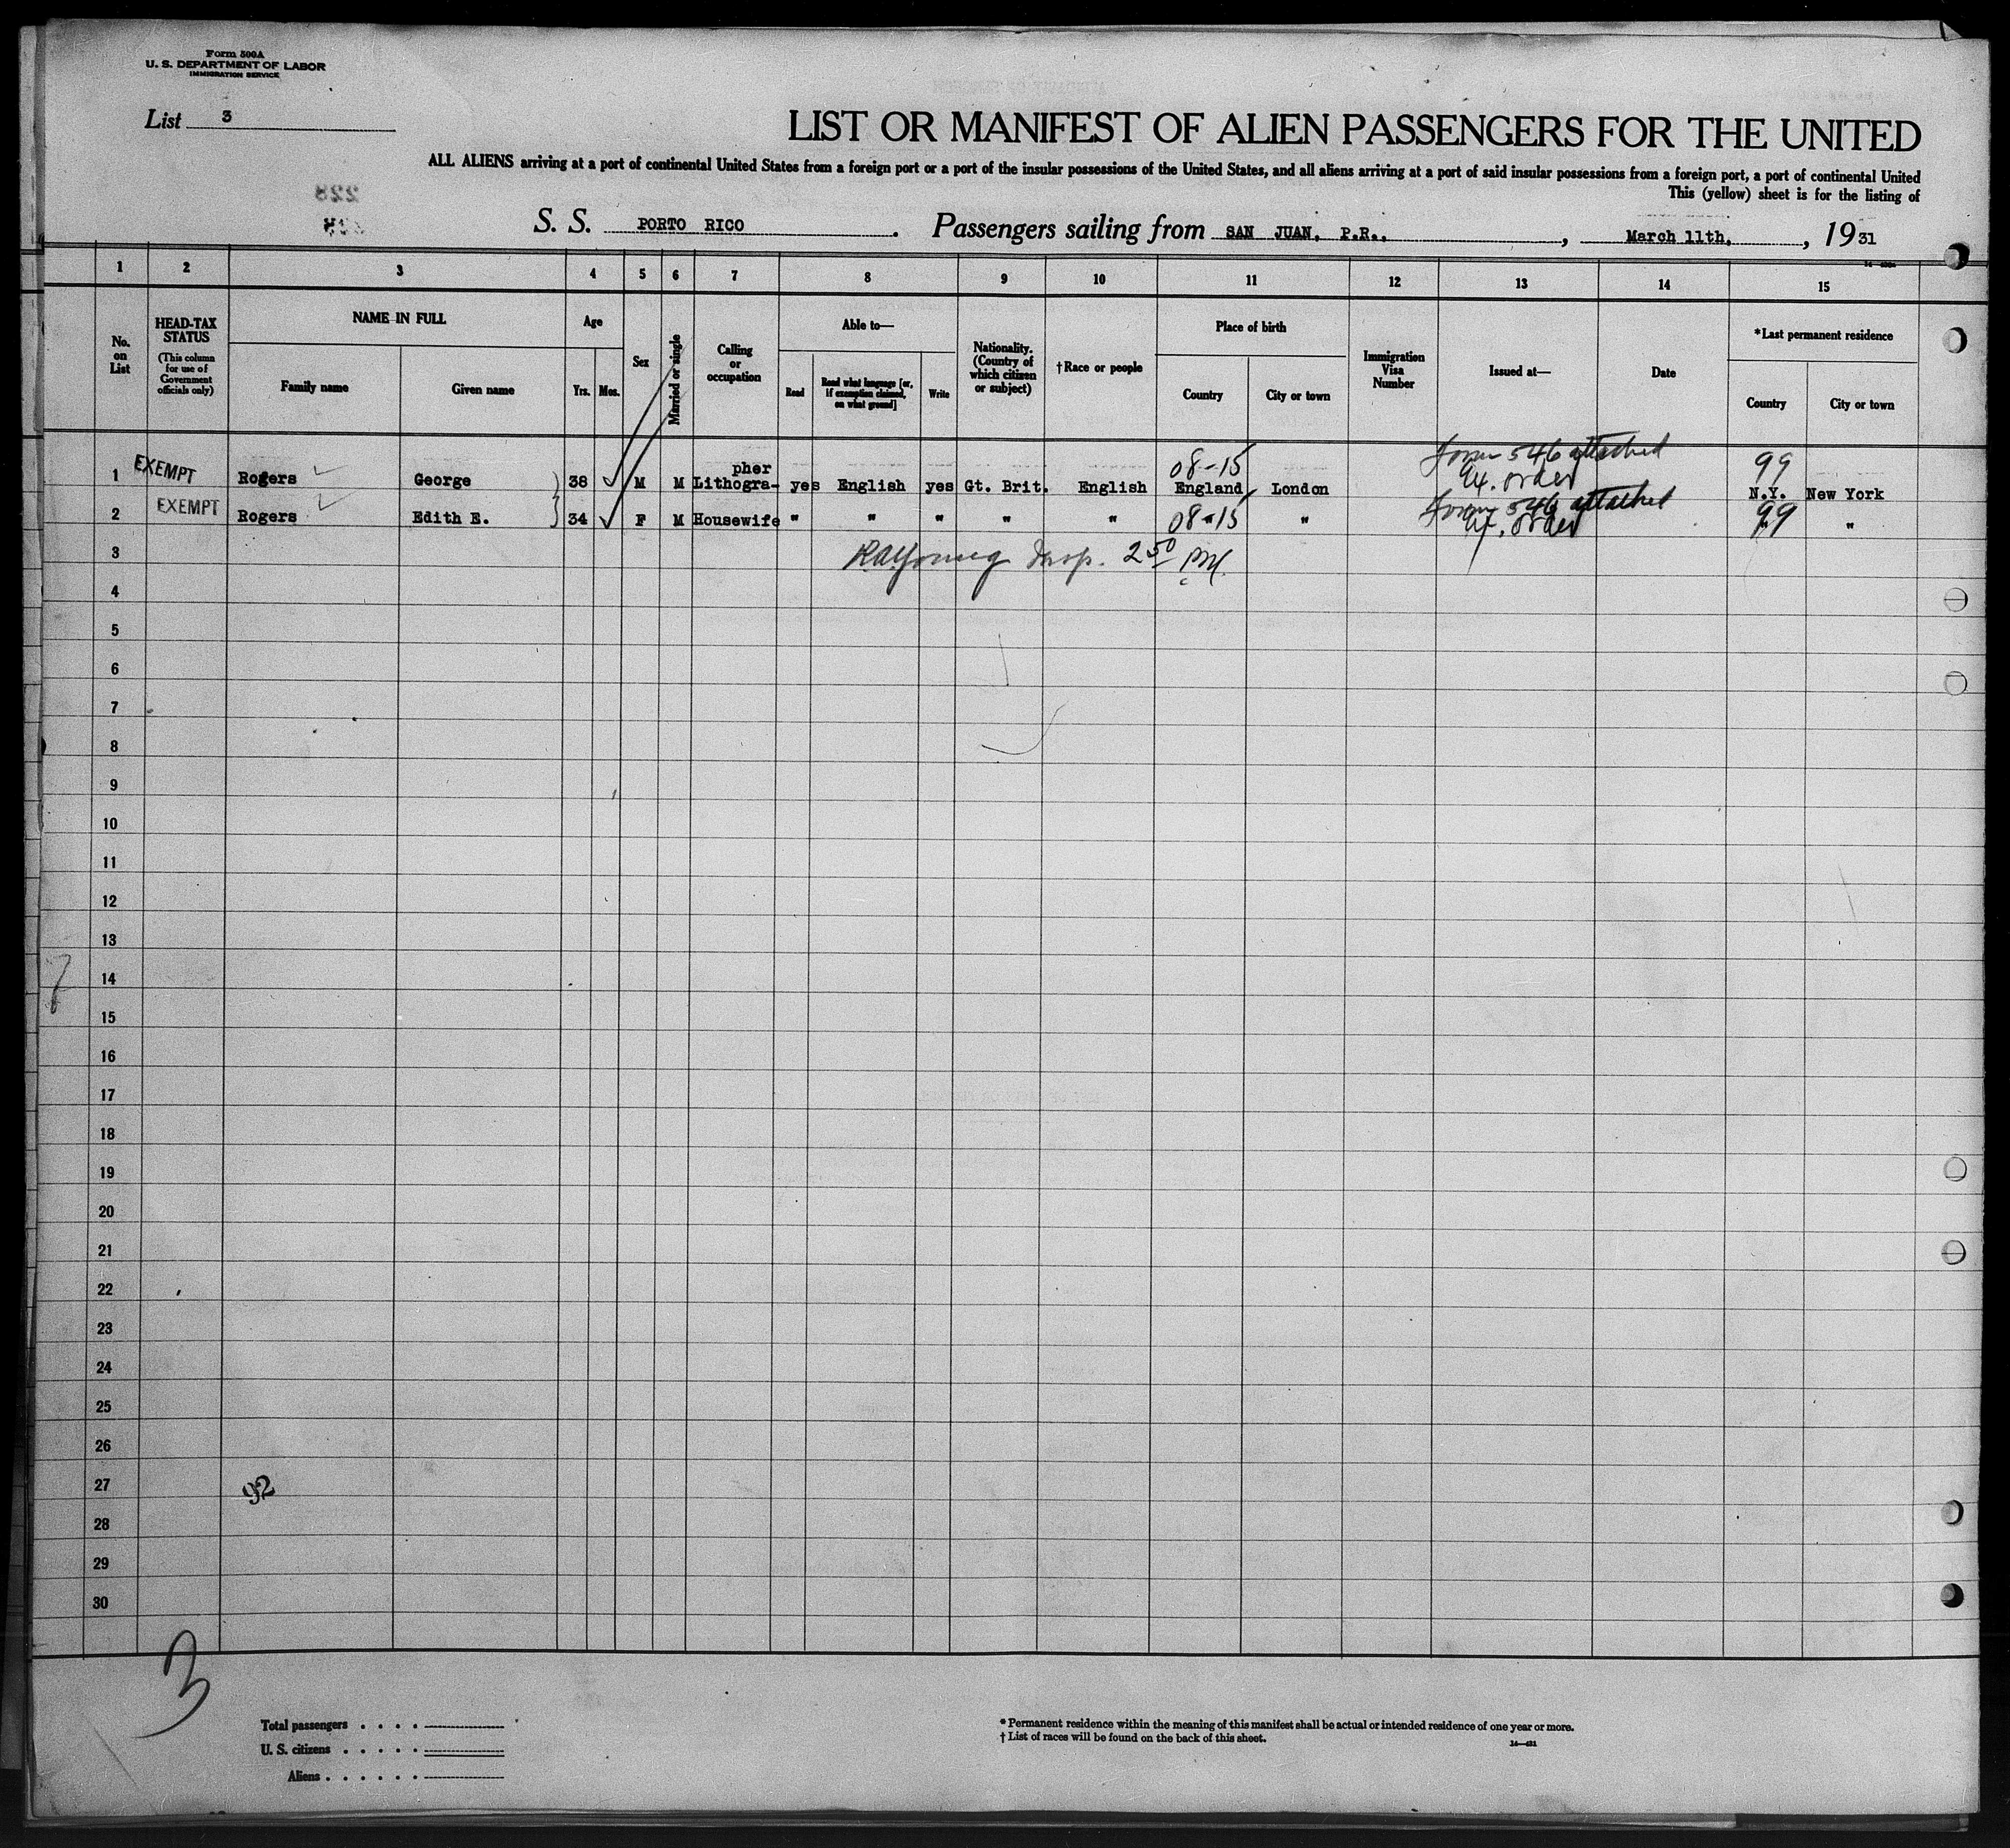 Form 500A
U. S. DEPARTMENT OF LABOR
IMMIGRATION SERVICE
List 3
LIST OR MANIFEST OF ALIEN PASSENGERS FOR THE UNITED
ALL ALIENS arriving at a port of continental United States from a foreign port or a port of the insular possessions of the United States, and all aliens arriving at a port of said insular possessions from a foreign port, a port of continental United
This (yellow) sheet is for the listing of
228
S. S. PORTO RICO. Passengers sailing from SAN JUAN, P.R., , March 11th, , 1931
1 2 3 4 5 6 7 8 9 10 11 12 13 14 15
No. on List
HEAD-TAX STATUS (This column for use of Government officials only)
NAME IN FULL
Family name
Given name
Age
Yrs. Mos.
Sex
Married or single
Calling or occupation
Able to—
Read
Read what language [or, if exemption claimed, on what ground]
Write
Nationality. (Country of which citizen or subject)
†Race or people
Place of birth
Country
City or town
Immigration Visa Number
Issued at—
Date
*Last permanent residence
Country
City or town
pher 08-15 Form 546 attached 99
1 EXEMPT Rogers George 38 M M Lithogra- yes English yes Gt. Brit. English England London Ex. order N.Y. New York
2 EXEMPT Rogers Edith E. 34 F M Housewife " " " " " 08-15 " Form 546 attached Ex. order 99 "
3 Insp. 2 50 PM.
4
5
6
7
8
9
10
11
12
13
14
15
16
17
18
19
20
21
22
23
24
25
26
27 92
28
29
30
3
Total passengers . . . .
U. S. citizens . . . . .
Aliens . . . . . .
* Permanent residence within the meaning of this manifest shall be actual or intended residence of one year or more.
† List of races will be found on the back of this sheet.